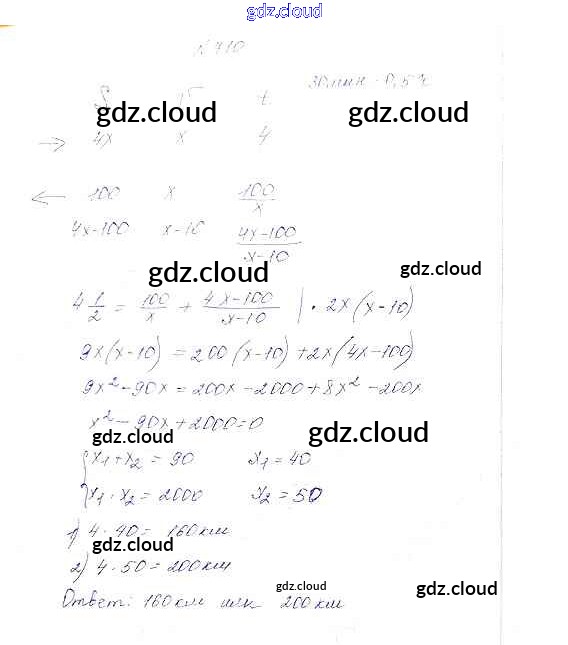 gdz.cloud
N 710
30 мин - 0,5 ч
S v t
gdz.cloud gdz.cloud
→ 4x x 4
← 100 x 100/x
4x-100 x-10 4x-100/x-10
gdz.cloud gdz.cloud
4 1/2 = 100/x + 4x-100/x-10 | · 2x(x-10)
9x(x-10) = 200(x-10) + 2x(4x-100)
9x² - 90x = 200x - 2000 + 8x² - 200x
x² - 90x + 2000 = 0
gdz.cloud gdz.cloud
{ x₁ + x₂ = 90 x₁ = 40
x₁ · x₂ = 2000 x₂ = 50
1) 4 · 40 = 160 км
gdz.cloud
2) 4 · 50 = 200 км
gdz.cloud gdz.cloud
Ответ: 160 км или 200 км